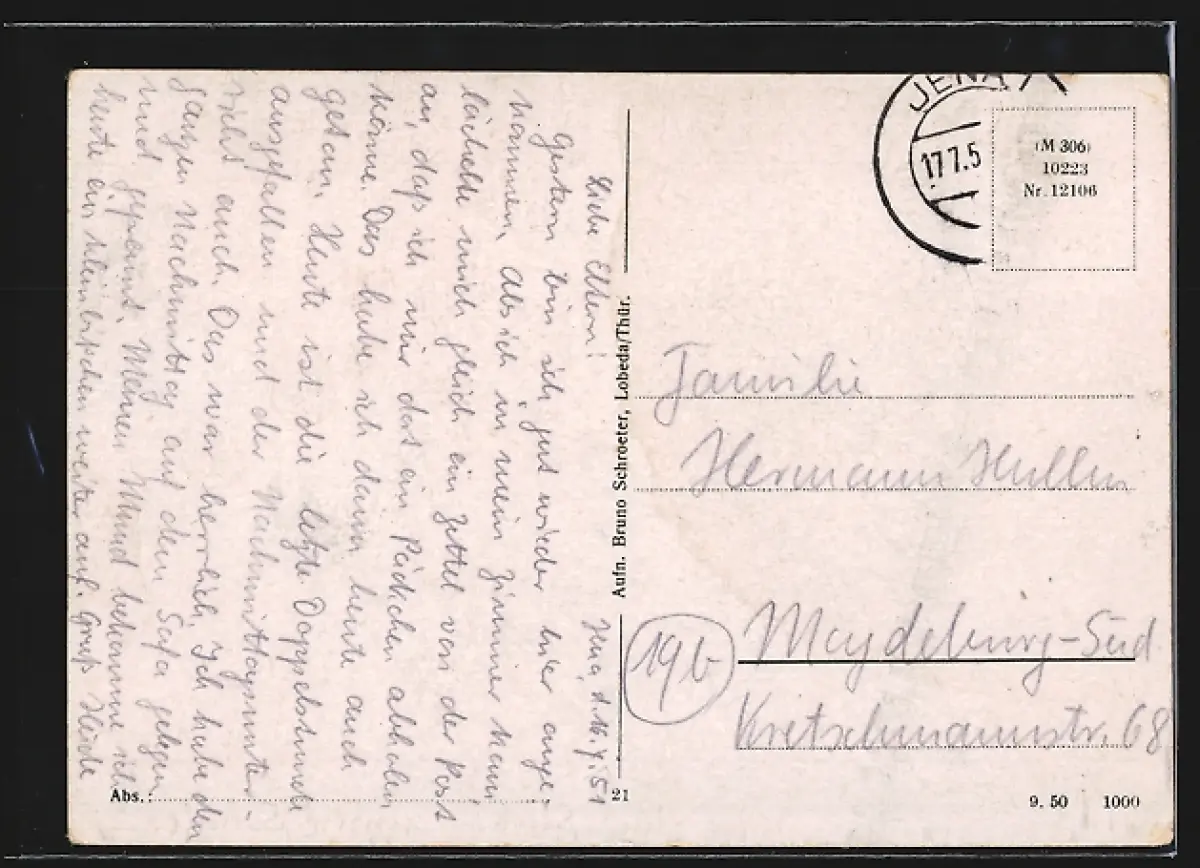 Jena, d. 16.7.51
Liebe Eltern!
Gestern bin ich gut wieder hier ange-
kommen. Als ich in mein Zimmer kam
lächelte mich gleich ein Zettel von der Post
an, daß ich mir dort ein Päckchen abholen
könne. Das habe ich dann heute auch
getan. Heute ist die letzte Doppelstunde
ausgefallen und der Nachmittagsunter-
richt auch. Das war herrlich. Ich habe den
ganzen Nachmittag auf den Sofa gelegen
und gepennt. Meinen Mund bekomme ich
heute ein klein bischen weiter auf. Gruß Heide
Abs.:
21
Aufn. Bruno Schroeter, Lobeda/Thür.
JENA
17 7.5
(M 306)
10223
Nr. 12106
Familie
Hermann
19b
Magdeburg-Süd
Kretschmannstr. 68
9. 50 1000